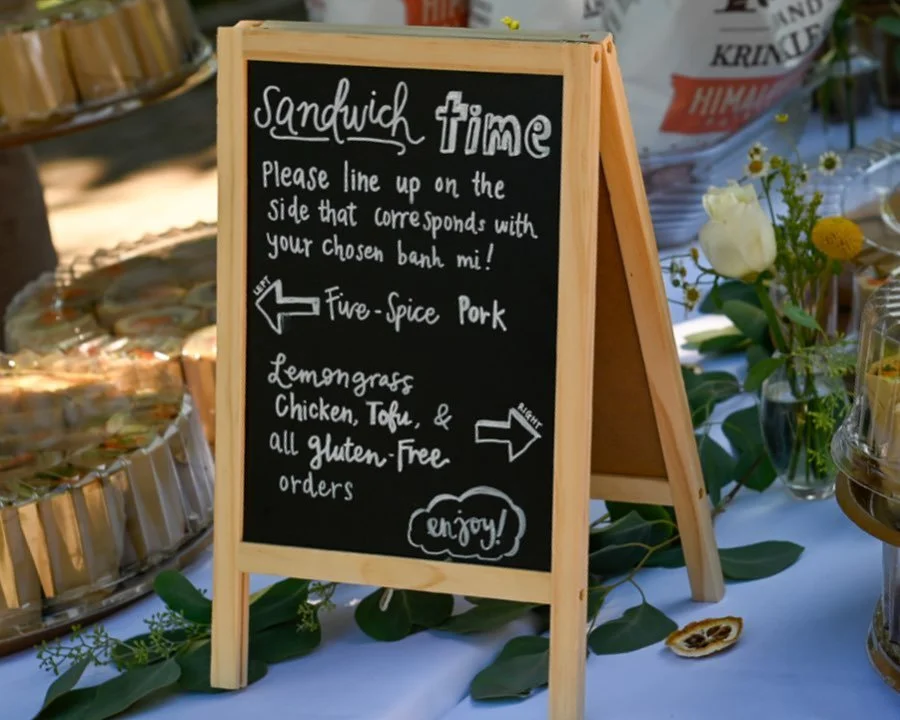 Sandwich time
Please line up on the
side that corresponds with
your chosen banh mi!
LEFT
Five-Spice Pork
Lemongrass
Chicken, Tofu, &
RIGHT
all gluten-Free
orders
enjoy!
AND
KRINKLE
HIMALA
HIM